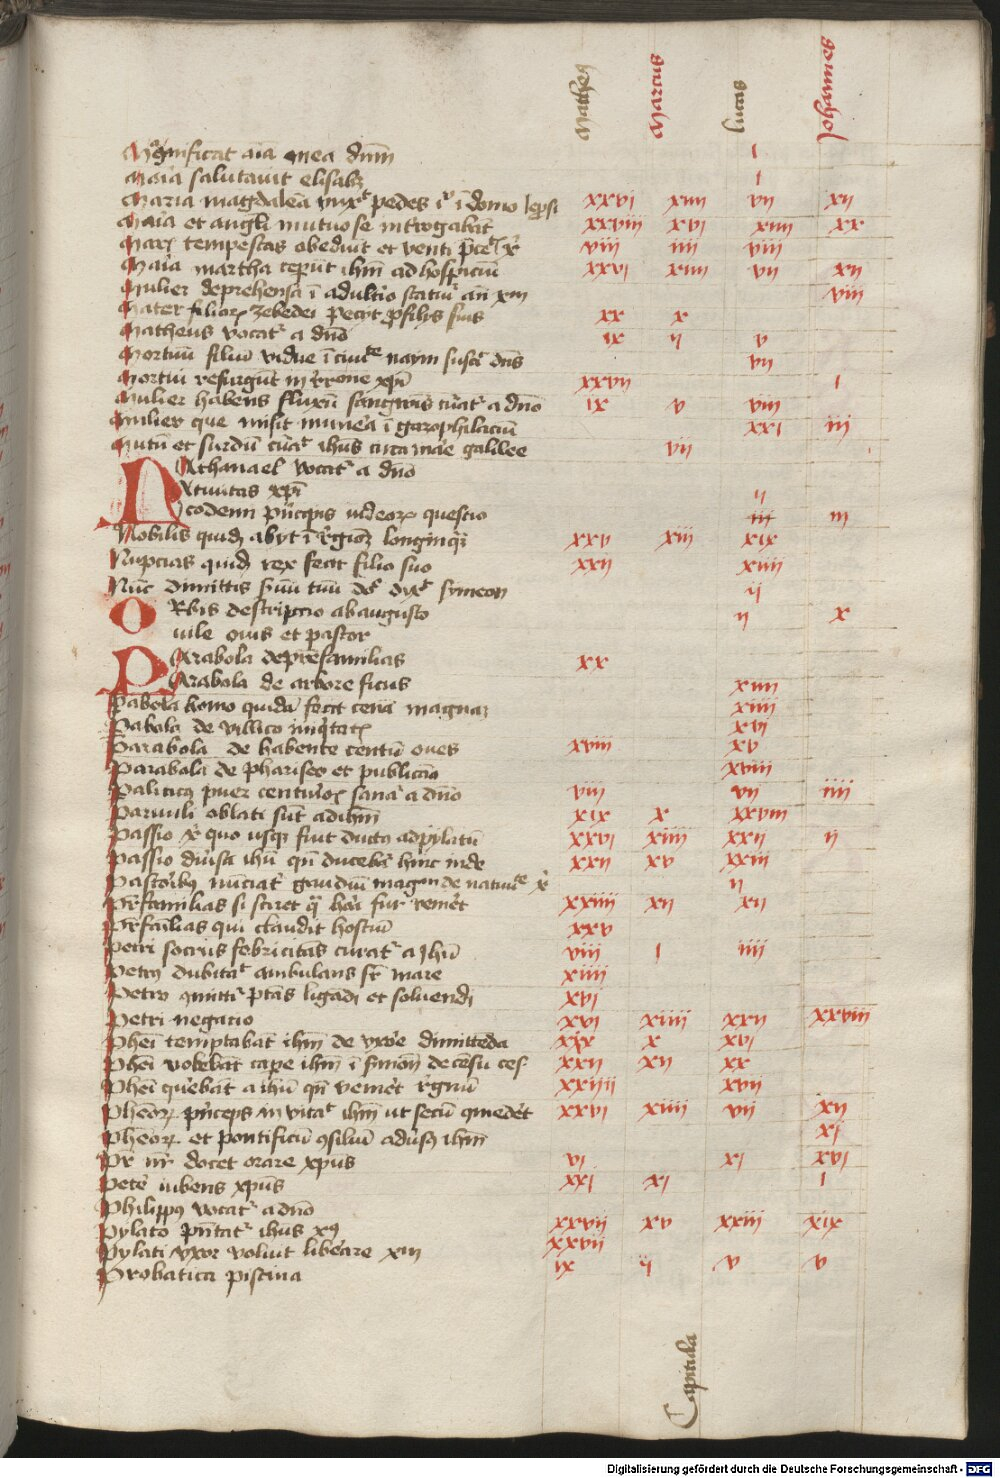 Matheus Marcus Lucas Johannes
Magnificat aīa mea dnm̄ i
Maīa salutavit elisabz i
Maria magdalena unxt pedes ī domo lepsi xxvi xiiii vii xii
Maīa et angli mutuo se introgabāt xxviii xvi xxiiii xx
Mare tempestas obedivit et venti viii iiii viii
Maīa martha cepūt ihm̄ ad hospiciū xxvi xiiii vii xii
Mulier deprehensa ī adultīo viii
Mater filior zebedei petiit p filiis suis xx x
Matheus vocat a dn̄o ix ii v
Mortuū filiū vidue ī civite naym suscit dn̄s vii
Mortui resurgūt xpi xxvii i
Mulier habens fluxū sangwis curat a dn̄o ix v viii
Mulier que misit munera ī gazophilaciū xxi iii
Mutū et surdū curat ihūs circa mare galilee vii
Nathanael vocat a dn̄o
Nativitas xpī ii
Nicodemi pncipis iudeor questio iii iii
Nobilis quidā abyt ī regionē longinq xxv xiii xix
Nupcias quidā rex fecit filio suo xxii xiiii
Nūc dimittis servū tuū dixt symeon ii
Orbis descriptio ab augusto ii x
Ovile ovis et pastor
Parabola de prēfamilias xx
Parabola de arbore ficus xiii
Pabola homo quidā fecit cenā magnā xiiii
Pabola de villico iniqtatis xvi
Parabola de habente centū oves xviii xv
Parabola de phariseo et publicāo xviii
Paliticus puer centurios sanat a dn̄o viii vii iiii
Parvuli oblati sūt ad ihm̄ xix x xxviii
Passio xp̄ quo usq fuit ductus ad pylatū xxvi xiiii xxii ii
Passio divsa ihū qn̄ ducebat hinc inde xxii xv xxiii
Pastorib nūciat gaudiū magnū de nativite xp̄ ii
Prfamilias si sciret q̄ hora fur veniret xxiiii xii xii
Prfamilias qui claudit hostiū xxv
Petri socrus febricitās curat a Jhū viii i iiii
Petrus dubitat ambulans sr̄ mare xiiii
Petro comittit ptās ligandi et solvendi xvi
Petri negatio xvi xiiii xxii xxviii
Phēi temptabāt ihm̄ de uxore dimittēda xix x xvi
Phēi volebāt cape ihm̄ ī smone de censu ces xxii xii xx
Phēi querebāt a ihū qn̄ veniret regnū xxiiii xvii
Pheor pnceps invitat ihm̄ ut secū comederet xxvi xiiii vii xii
Pheor et pontificū consiliū advsus ihm̄ xi
Pr nr docet orare xpūs vi xi xvi
Petere iubens xpūs xxi xi i
Philippus vocat a dn̄o
Pylato pn̄tat ihūs xpus xxvii xv xxiii xix
Pylati uxor voluit liberare xm xxvii
Probatica piscina ix ii v v
Capitula
Digitalisierung gefördert durch die Deutsche Forschungsgemeinschaft - DFG